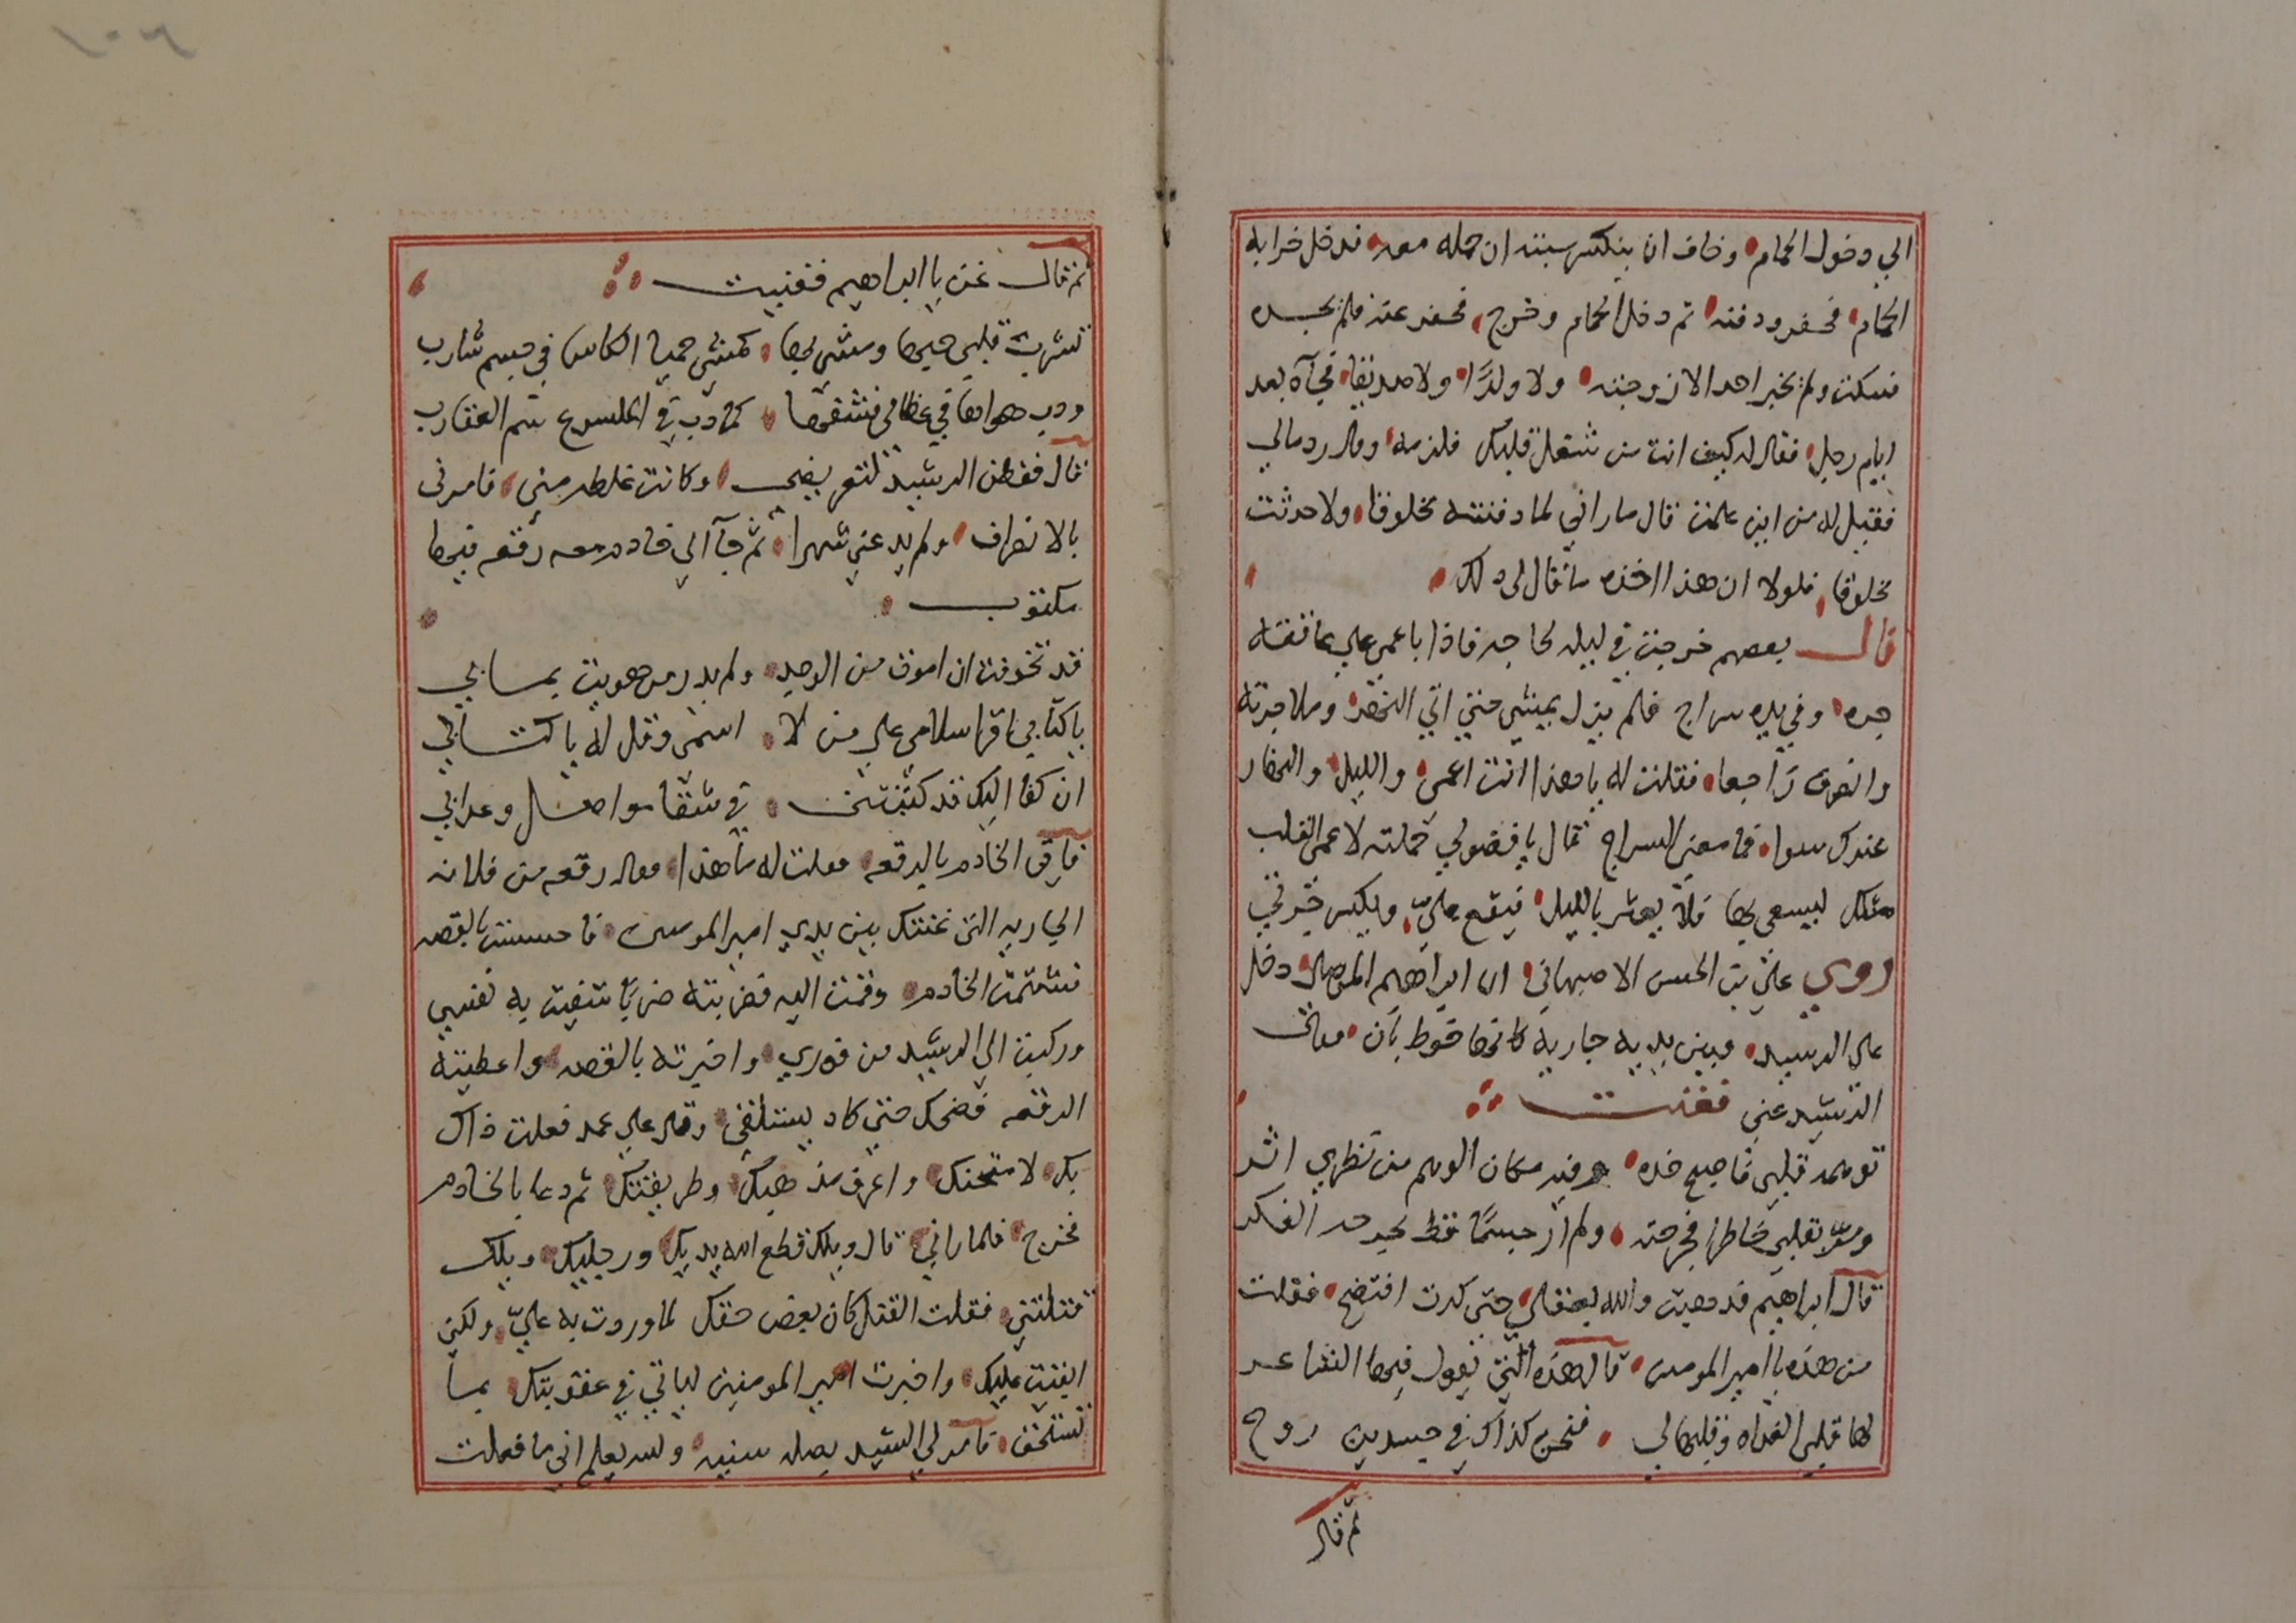 الي دخول الحمام وخاف ان ينكسر سبته ان حمله معه فدخل خرابه
الحمام فحفر ودفنه ثم دخل الحمام وخرج فحفر عنه فلم يجده
فسكت ولم يخبر احدا الا زوجته ولا ولدًا ولا صديقا فجآه بعد
ايام رجل فقال له كيف انت من شغل قلبك فلزمه وقال رد مالي
فقيل له من اين علمت قال ما راني لما دفنته مخلوقا ولا حدثت
مخلوقا فلولا ان هذا اخذه ما قال لي ذلك
قال بعضهم خرجت في ليله لحاجه فاذا باعمى علي عاتقه
جره وفي يده سراج فلم يزل يمشي حتي اتي النهر وملا جرته
وانصرف راجعا فقلت له يا هذا انت اعمى والليل والنهار
عندك سوا فما معنى السراج قال يا فضولي حملته لاعمى القلب
مثلك ليستضي بها فلا يعثر بالليل فيقع عليّ ويكسر جرتي
روي علي بن الحسن الاصبهاني ان ابراهيم الموصلي دخل
على الرشيد وبين يديه جارية كانها خوط بان فقال
الرشيد غني فغنت
توهمه قلبي فاصبح خده وفيه مكان الوهم من نظري اثر
ومرّ بقلبي خاطرا فجرحته ولم ار جسمًا قط يجرحه الفكر
قال ابراهيم فذهبت والله بعقلي حتى كدت افتضح فقلت
من هذه يا امير المومنين قال هذه التي يقول فيها الشاعر
لها قلبي الغداه وقلبها لي فنحن كذاك في جسدين روح
ثم قال
ثم قال غن يا ابراهيم فغنيت
تشرب قلبي حبها ومشى بها كمشي حميا الكاس في جسم شارب
ودب هواها في عظامي فشفها كما دب في الملسوع سم العقارب
قال ففطن الرشيد لتعريضي وكانت غلطه مني فامرني
بالانصراف ولم يدعني شهرا ثم جآ الي خادم معه رقعه فيها
مكتوب
قد تخوفت ان اموت من الوجد ولم يدر من هويت بما بي
يا كتابي فاقرا سلامي على من لا اسمى وقل له يا كتابي
ان كفا اليك قد كتبتني في شقا مواصل وعذابي
فاتى الخادم بالرقعه فقلت له ما هذا فقال رقعه من فلانه
الجاريه التي غنتك بين يدي امير المومنين فاحسست بالقصه
فشتمت الخادم وقمت اليه فضربته ضربا شفيت به نفسي
وركبت الي الرشيد من فوري واخبرته بالقصه واعطيته
الرقعه فضحك حتي كاد يستلقي وقال علي عمد فعلت ذاك
بك لامتحنك واعرف مذهبك وطريقتك ثم دعا بالخادم
فخرج فلما راني قال ويلك قطع الله يديك ورجليك ويلك
قتلتني فقلت القتل كان بعض حقك لما وردت به عليّ ولكن
ابقيت عليك واخبرت امير المومنين لياتي في عقوبتك بما
تستحق فامر لي الرشيد بصله سنيه والله يعلم اني ما فعلت